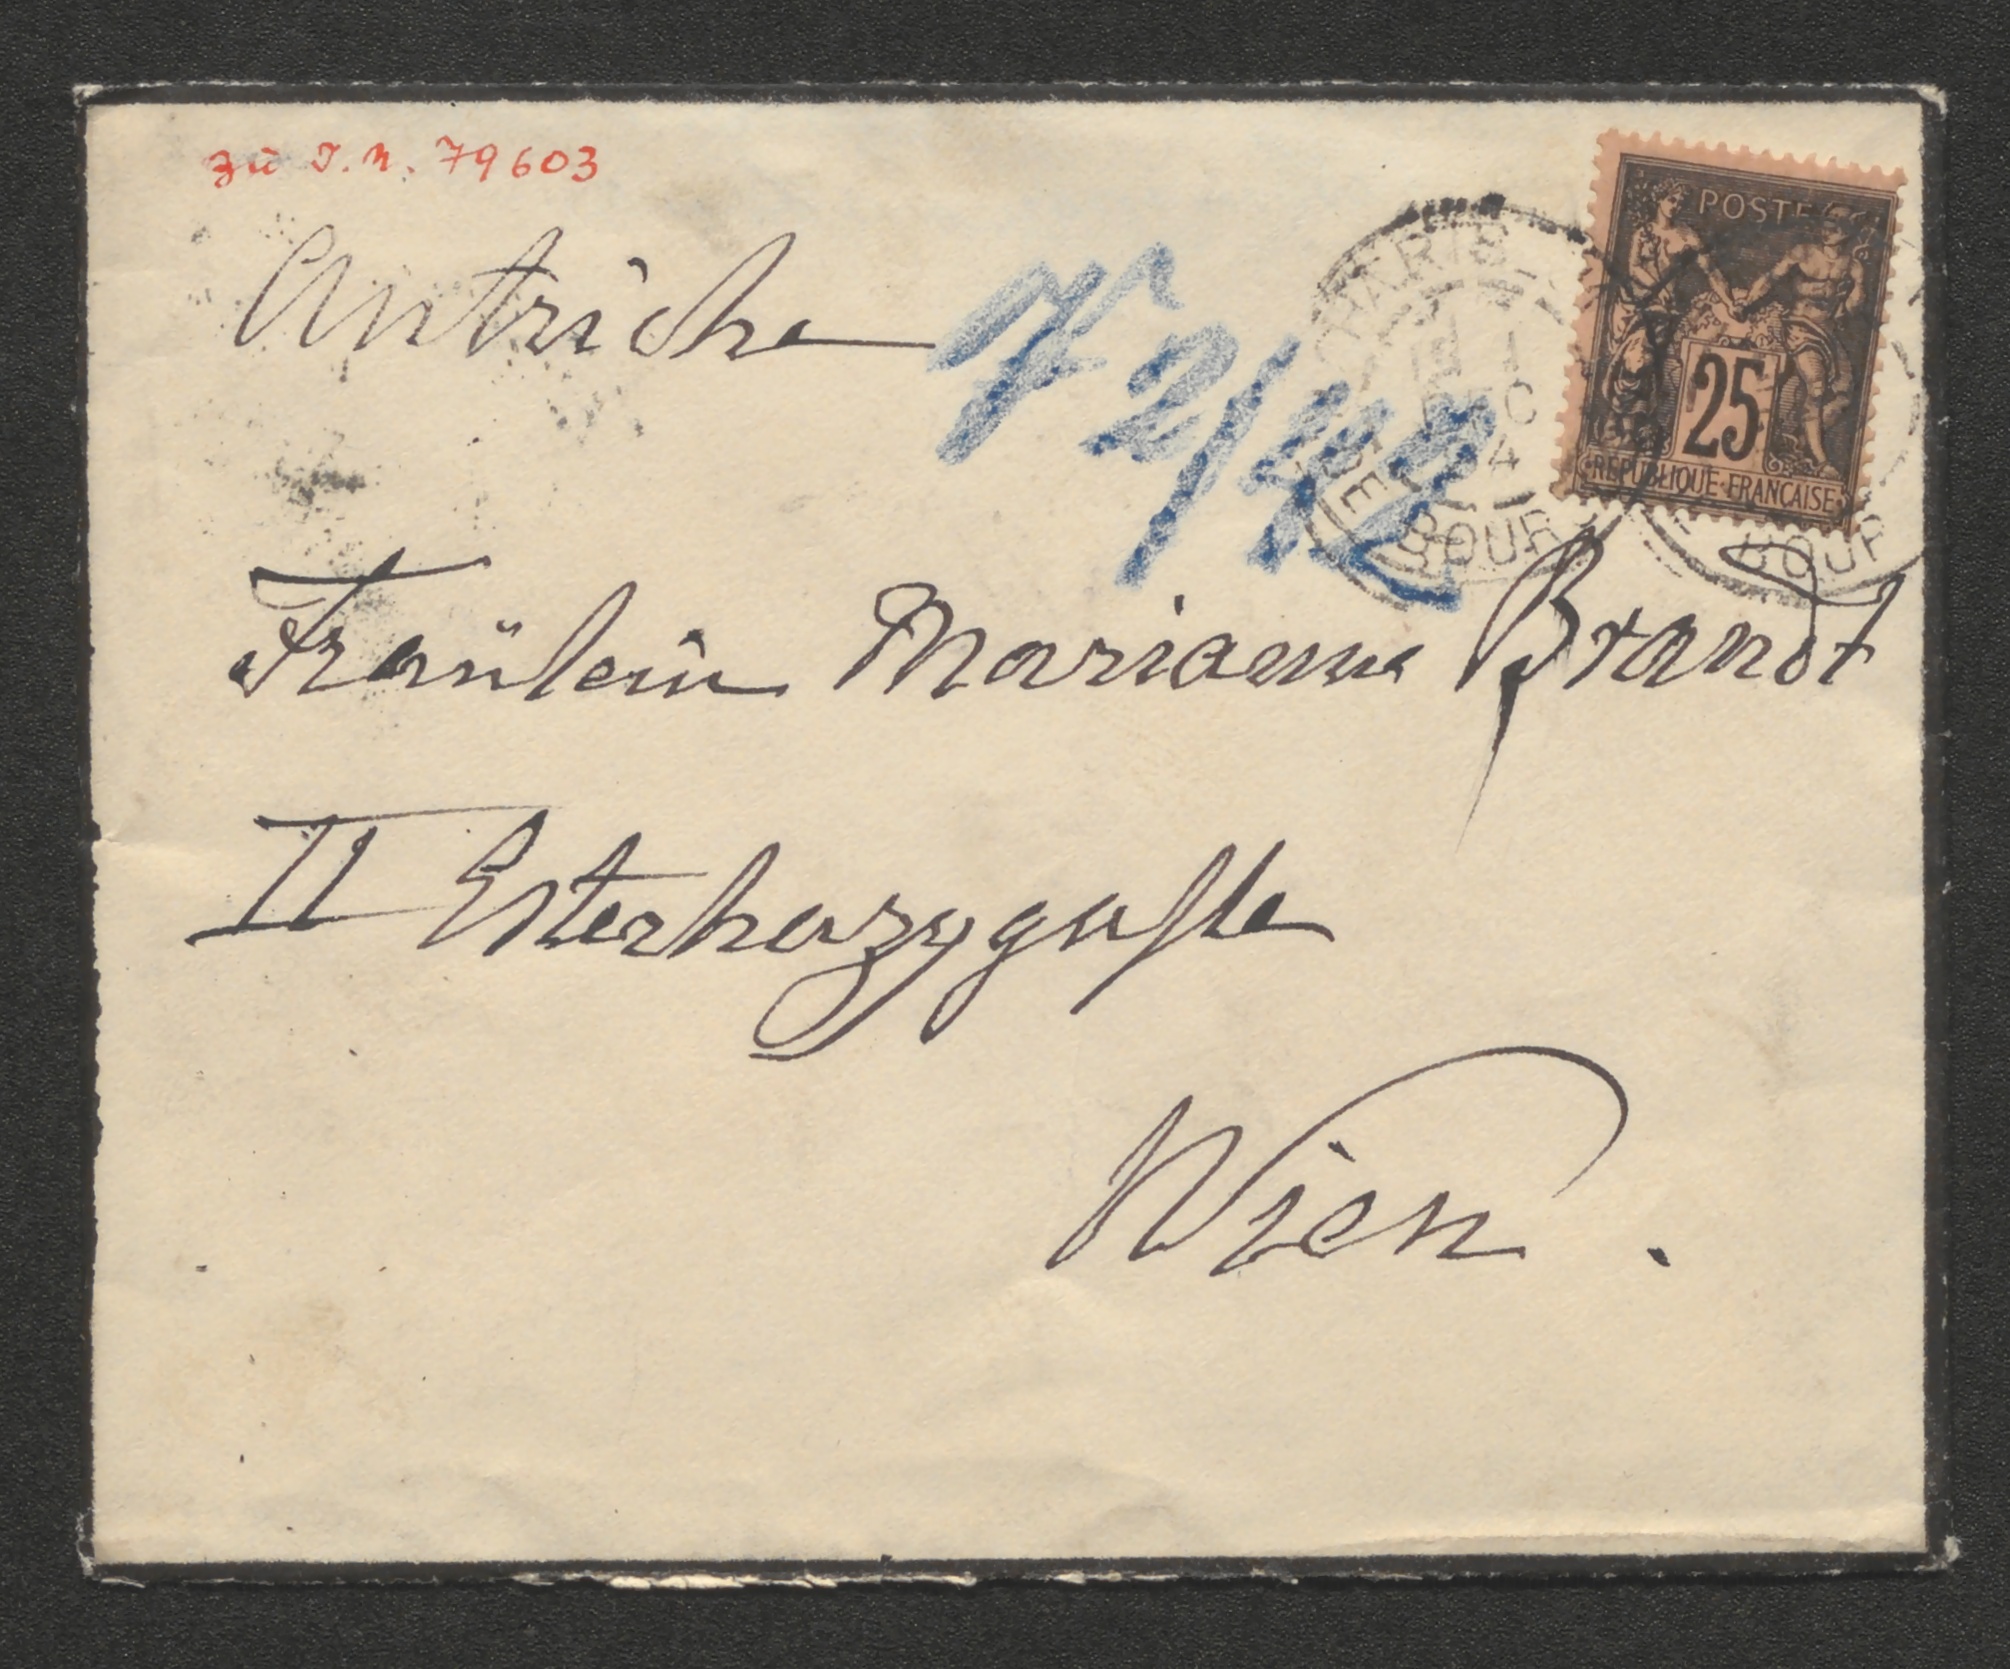 zu I.N. 79603
Autriche
2/12
POSTES
25
REPUBLIQUE FRANCAISE
PARIS
DE BOUR
BOUR
Fräulein Marianne Brandt
II Esterhazygasse
Wien.